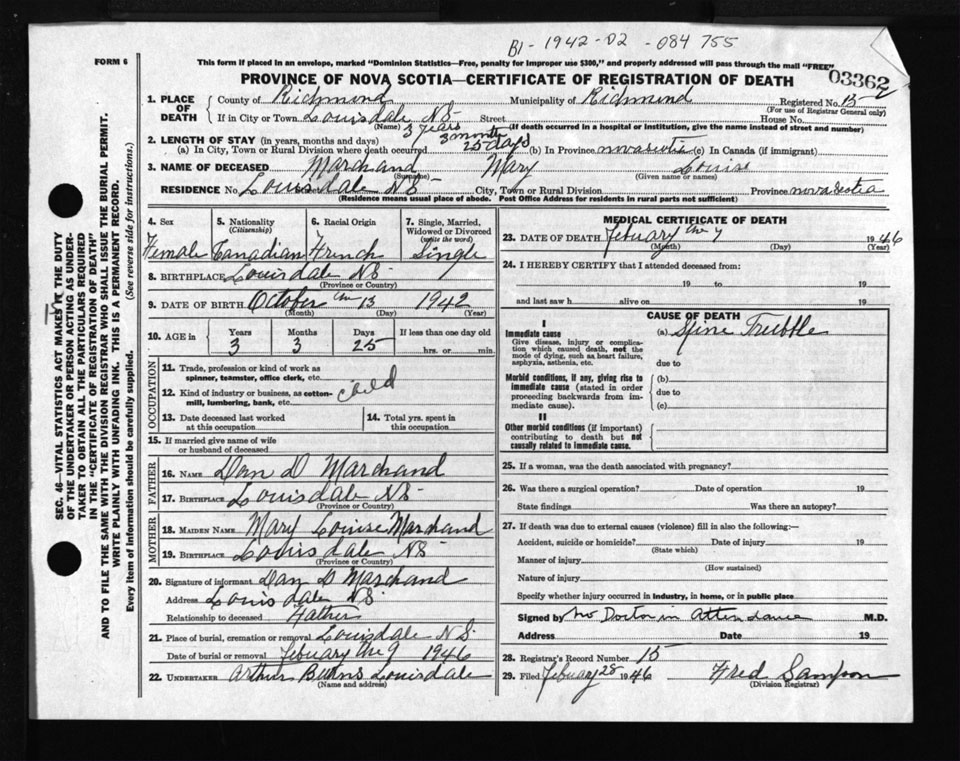 B1-1942-02-084755
FORM 6
This form if placed in an envelope, marked "Dominion Statistics—Free, penalty for improper use $300," and properly addressed will pass through the mail "FREE"
PROVINCE OF NOVA SCOTIA—CERTIFICATE OF REGISTRATION OF DEATH
03362
1. PLACE OF DEATH County of Richmond Municipality of Richmond Registered No. 15
(For use of Registrar General only)
If in City or Town Louisdale N.S. Street House No.
(Name) (If death occurred in a hospital or institution, give the name instead of street and number)
2. LENGTH OF STAY (in years, months and days) 3 years 3 months 25 days
(a) In City, Town or Rural Division where death occurred (b) In Province novascotia (c) In Canada (if immigrant)
3. NAME OF DECEASED Marchand Mary Louise
(Surname) (Given name or names)
RESIDENCE No. Louisdale NS City, Town or Rural Division Province nova scotia
(Residence means usual place of abode. Post Office Address for residents in rural parts not sufficient)
4. Sex Female
5. Nationality (Citizenship) Canadian
6. Racial Origin French
7. Single, Married, Widowed or Divorced (write the word) Single
8. BIRTHPLACE Louisdale NS
(Province or Country)
9. DATE OF BIRTH October the 13 1942
(Month) (Day) (Year)
10. AGE in Years 3 Months 3 Days 25 If less than one day old hrs. or min.
OCCUPATION
11. Trade, profession or kind of work as spinner, teamster, office clerk, etc.
12. Kind of industry or business, as cotton-mill, lumbering, bank, etc.
13. Date deceased last worked at this occupation
14. Total yrs. spent in this occupation
15. If married give name of wife or husband of deceased
FATHER
16. NAME Dan D Marchand
17. BIRTHPLACE Louisdale NS
(Province or Country)
MOTHER
18. MAIDEN NAME Mary Louise Marchand
19. BIRTHPLACE Louisdale NS
(Province or Country)
20. Signature of informant Dan D Marchand
Address Louisdale NS.
Relationship to deceased Father
21. Place of burial, cremation or removal Louisdale N S.
Date of burial or removal Febuary the 9 1946
22. UNDERTAKER Arthur Burns Louisdale
(Name and address)
MEDICAL CERTIFICATE OF DEATH
23. DATE OF DEATH Febuary the 7 1946
(Month) (Day) (Year)
24. I HEREBY CERTIFY that I attended deceased from:
19 to 19
and last saw h alive on 19
CAUSE OF DEATH
I
Immediate cause (a) Spine Trubble
Give disease, injury or complication which caused death, not the mode of dying, such as heart failure, asphyxia, asthenia, etc.
due to
Morbid conditions, if any, giving rise to immediate cause (stated in order proceeding backwards from immediate cause).
(b)
due to
(c)
II
Other morbid conditions (if important) contributing to death but not causally related to immediate cause.
25. If a woman, was the death associated with pregnancy?
26. Was there a surgical operation? Date of operation 19
State findings Was there an autopsy?
27. If death was due to external causes (violence) fill in also the following:—
Accident, suicide or homicide? Date of injury 19
(State which)
Manner of injury
(How sustained)
Nature of injury
Specify whether injury occurred in industry, in home, or in public place
Signed by No Doctor in Attendance M.D.
Address Date 19
28. Registrar's Record Number 15
29. Filed Febuary 28 1946 Fred Sampson
(Division Registrar)
SEC. 46—VITAL STATISTICS ACT MAKES IT THE DUTY
OF THE UNDERTAKER OR PERSON ACTING AS UNDER-
TAKER TO OBTAIN ALL THE PARTICULARS REQUIRED
IN THE "CERTIFICATE OF REGISTRATION OF DEATH"
AND TO FILE THE SAME WITH THE DIVISION REGISTRAR WHO SHALL ISSUE THE BURIAL PERMIT.
WRITE PLAINLY WITH UNFADING INK. THIS IS A PERMANENT RECORD.
Every item of information should be carefully supplied. (See reverse side for instructions.)